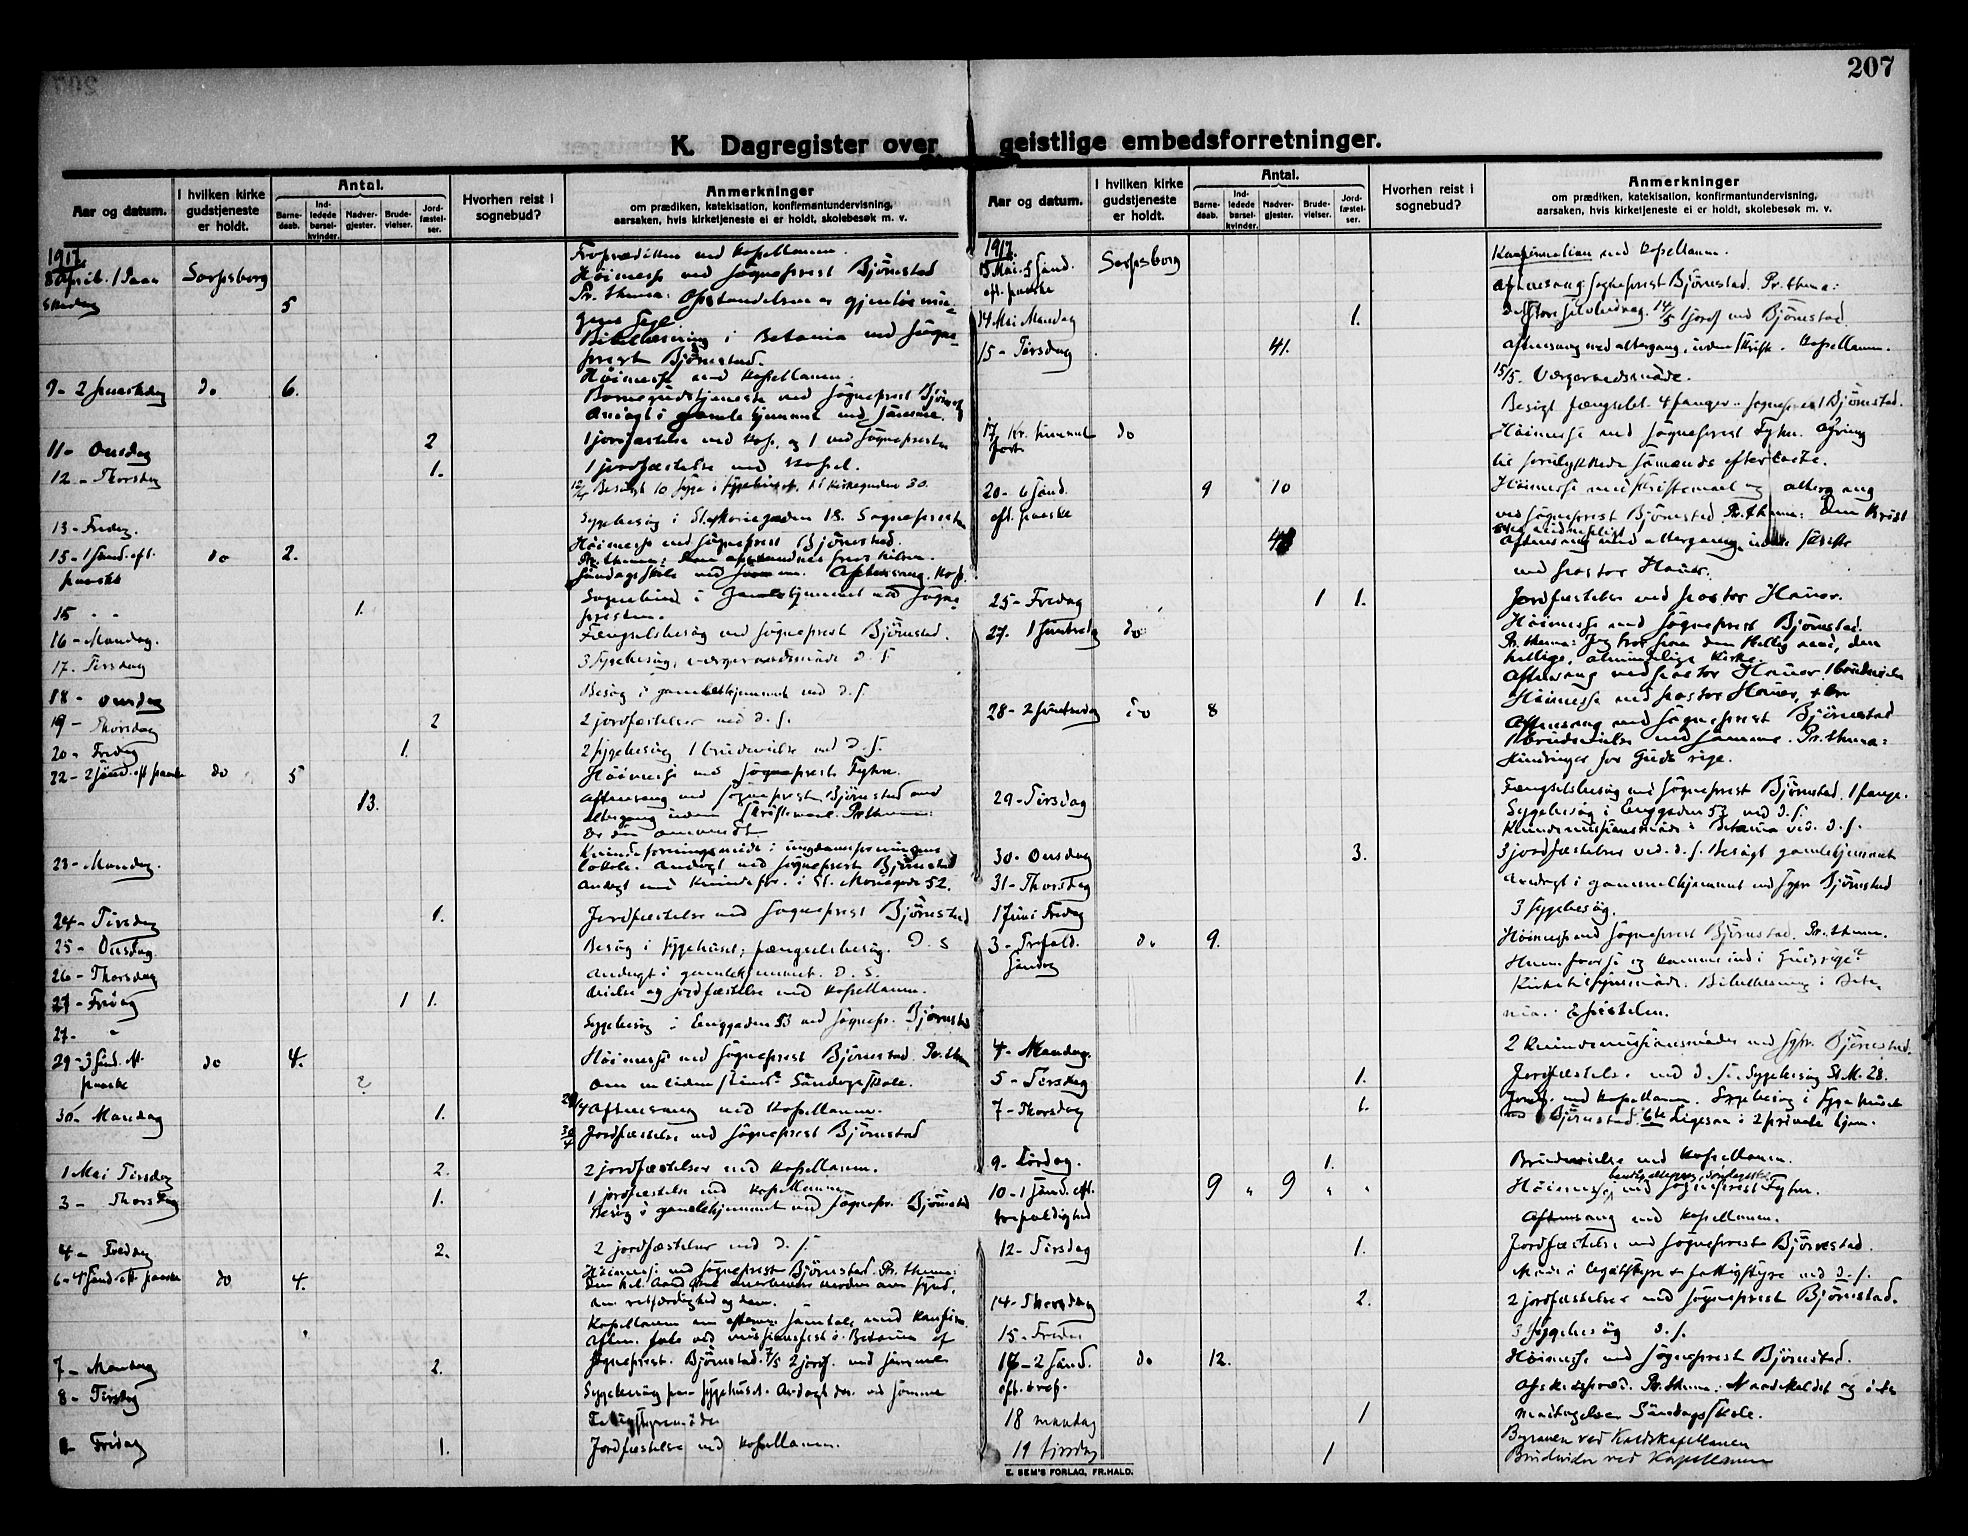 207
K. Dagregister over geistlige embedsforretninger.
Aar og datum.
I hvilken kirke gudstjeneste er holdt.
Antal.
Barne-daab.
Ind-ledede barsel-kvinder.
Nadver-gjester.
Brude-vielser.
Jord-fæstel-ser.
Hvorhen reist i sognebud?
Anmerkninger
om prædiken, katekisation, konfirmantundervisning,
aarsaken, hvis kirketjeneste ei er holdt, skolebesøk m. v.
1917
Høimesse ved sogneprest Bjørnestad
8 April. 1 Paaske Søndag Sarpsborg 5
Pr. thema: Opstandelsen
Bibellæsning i Betania ved sogne-
prest Bjørnestad.
Høimesse ved kapellanen.
9- 2 paaskedag do 6.
Barnegudstjeneste ved sogneprest Bjørnest.
Andagt i gamlehjemmet ved samme.
11- Onsdag 2 1 jordfæstelse ved kap. og 1 ved sognepresten
12 - Thorsdag 1. 1 jordfæstelse ved kapel.
13 - Fredag. Sygebesøg i St. Mariegaden 18. Sognepresten
Høimesse ved sogneprest Bjørnestad.
15 - 1 Sønd. eft. paaske do 2.
Søndagsskole ved samme. Aftensang. Kap.
15 " " 1. Sognebud i gamlehjemmet ved sogne-
presten.
16 - Mandag. Fængselsbesøg ved sogneprest Bjørnestad.
17. Tirsdag 3 sygebesøg, værgeraadsmøde d. s.
18 - Onsdag Besøg i gamlehjemmet ved d. s.
19 - Thorsdag 2 2 jordfæstelser ved d. s.
20 - Fredag 1. 2 sygebesøg 1 brudevielse ved d. s.
22 - 2 sønd. eft paaske do 5 Høimesse ved sogneprest Fyhn.
13. Aftensang ved sogneprest Bjørnestad med
altergang uden skriftemaal. Pr. thema:
Er du omvendt
23 - Mandag. Kvindeforeningsmøde i ungdomsforeningens
lokale. Andagt ved sogneprest Bjørnestad
Andagt med kvindefor. i St. Mariegade 52.
24 - Tirsdag 1. Jordfæstelse ved sogneprest Bjørnestad
25 - Onsdag. Besøg i sygehuset; fængselsbesøg. D. S
26 - Thorsdag Andagt i gamlehjemmet. D. S.
27 - Fredag 1 1. Vielse og jordfæstelse ved kapellanen.
27- " Sygebesøg i Enggaden 53 ved sognepr. Bjørnestad
29 - 3 sønd. eft. paaske do 4. Høimesse ved sogneprest Bjørnestad. Pr. thema
Om en liden stund. Søndagsskole.
29/4 Aftensang ved kapellanen.
30 - Mandag 1. 30/4 Jordfæstelse ved sogneprest Bjørnestad
1 Mai Tirsdag 2. 2 jordfæstelser ved kapellanen.
3 - Thorsdag 1. 1 jordfæstelse ved kapellanen
Besøg i gamlehjemmet ved sognepr. Bjørnestad
4 - Fredag 2. 2 jordfæstelser ved d. s.
6 - 4 sønd. eft paaske do 4. Høimesse ved sogneprest Bjørnestad. Pr. thema:
om retfærdighed og dom.
7 - Mandag 2. sogneprest Bjørnestad. 7/5 2 jordf. ved samme
8 - Tirsdag Sygebesøg paa sygehuset. Andagt der ved samme
Fattigstyremøde
Fridag 1. Jordfæstelse ved kapellanen.
Aar og datum.
I hvilken kirke gudstjeneste er holdt.
Antal.
Barne-daab.
Ind-ledede barsel-kvinder.
Nadver-gjester.
Brude-vielser.
Jord-fæstel-ser.
Hvorhen reist i sognebud?
Anmerkninger
om prædiken, katekisation, konfirmantundervisning,
aarsaken, hvis kirketjeneste ei er holdt, skolebesøk m. v.
1917.
13 Mai. 5 Sønd. eft. paaske Sarpsborg Konfirmation ved kapellanen.
Aftensang sogneprest Bjørnestad. Pr. thema:
14 Mai Mandag 1. 14/5 1 jordf ved Bjørnestad.
15 - Tirsdag 41. Aftensang med altergang, uden skrift. Kapellanen.
15/5. Værgeraadsmøde.
Besøgt fængselet. 4 fanger. Sogneprest Bjørnestad.
17 Kr. himmelfart do Høimesse ved sogneprest Fyhn. Ofring
til forulykkede sømænds efterlatte.
20 - 6 Sønd. eft. paaske 9 10 Høimesse med skriftemaal og altergang
ved sogneprest Bjørnestad. Pr. thema:
Aftensang med altergang, uden skrifte
ved pastor Hauer.
25 - Fredag 1 1. Jordfæstelse ved pastor Hauer.
27. 1 pintsedag do Høimesse ved sogneprest Bjørnestad.
Pr. thema: Jeg tror paa den Hellig aand, den
hellige, almindelige kirke.
Aftensang ved pastor Hauer 1 brudevielse
28 - 2 pintsedag do 8 Høimesse ved pastor Hauer,
Aftensang ved sogneprest Bjørnestad
1 brudevielse ved samme. Pr. thema:
Hindringer for Guds rige.
29 - Tirsdag Fængselsbesøg ved sogneprest Bjørnestad. 1 fange.
Sygebesøg i Enggaden 53 ved d. s.
Kvindemissionsmøde i Betania ved. d. s.
30 - Onsdag 3. 3 jordfæstelser ved. d. s. Besøgt gamlehjemmet
31 - Thorsdag Andagt i gammelhjemmet ved sgpr Bjørnestad
1 Juni Fredag 3 sygebesøg.
3 - Trefold. Søndag do 9. Høimesse ved sogneprest Bjørnestad. Pr. thema.
Hvem faar se og komme ind i Guds rige?
Bibellæsning i Beta-
nia.
4 - Mandag. 2 kvindemissionsmøder ved sgpr. Bjørnestad.
5 - Tirsdag 1. Jordfæstelse ved d. s. Sygebesøg St. M. 28.
7 - Thorsdag 1. Jordf. ved kapellanen. Sygebesøg i sygehuset
ved Bjørnestad. 6te Ligesaa i 2 private hjem.
9 - Lørdag. 1. Brudevielse ved kapellanen.
10 - 1 Sønd. eft. trefoldighed 9 " 9 " " Høimesse ved sogneprest Fyhn.
Aftensang ved kapellanen.
12 - Tirsdag 1. Jordfæstelse ved sogneprest Bjørnestad.
Møde i Legatstyre & fattigstyre ved d. s.
14 - Thorsdag 2. 2 jordfæstelser ved sogneprest Bjørnestad.
15 - Fredag 3 sygebesøg d. s.
17 - 2 Sønd. eft. tref. do 12. Høimesse ved sogneprest Bjørnestad.
Afskedspræd. Pr. thema: Naadekaldet og dets
modtagelse. Søndagsskole.
18 mandag 1 Begraven ved Kaldskapellanen
19 tirsdag 1 Brudevielse ved Kapellanen
E. SEM'S FORLAG, FR.HALD.